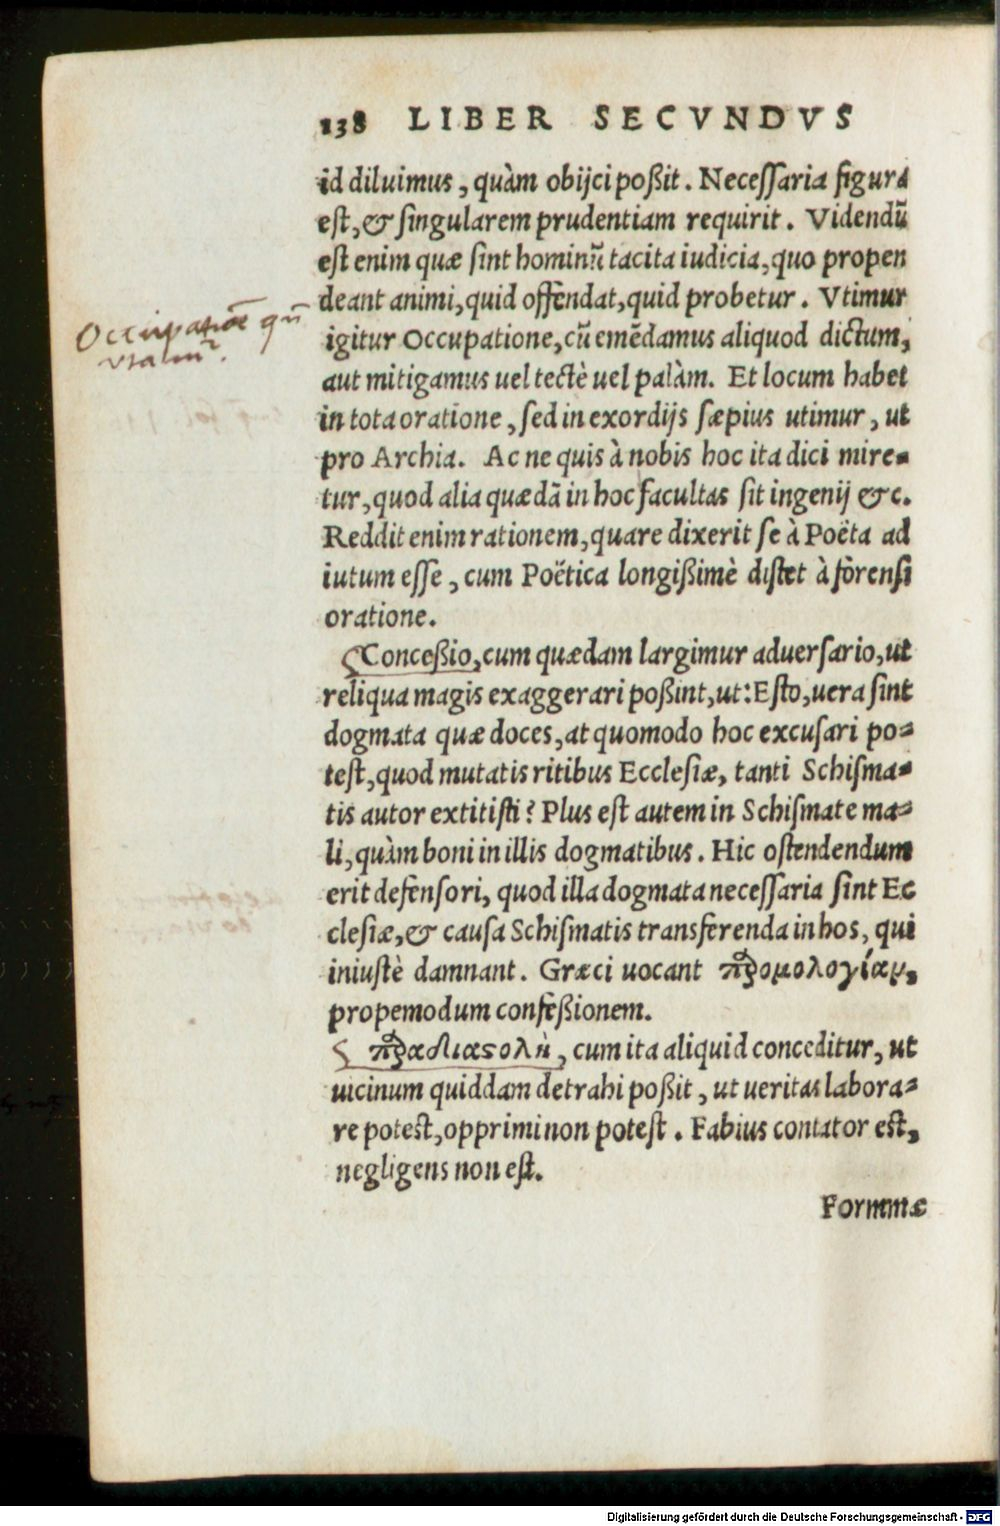 138 LIBER SECVNDVS
id diluimus, quàm obijci poßit. Necessaria figura
est, & singularem prudentiam requirit. Videndũ
est enim quæ sint hominũ tacita iudicia, quo propen
deant animi, quid offendat, quid probetur. Vtimur
Occupatiõe qñ
vtamur.
igitur Occupatione, cũ emẽdamus aliquod dictum,
aut mitigamus uel tectè uel palàm. Et locum habet
in tota oratione, sed in exordijs sæpius utimur, ut
pro Archia. Ac ne quis à nobis hoc ita dici mire-
tur, quod alia quædã in hoc facultas sit ingenij &c.
Reddit enim rationem, quare dixerit se à Poëta ad
iutum esse, cum Poëtica longißimè distet à forensi
oratione.
Conceßio, cum quædam largimur aduersario, ut
reliqua magis exaggerari poßint, ut: Esto, uera sint
dogmata quæ doces, at quomodo hoc excusari po-
test, quod mutatis ritibus Ecclesiæ, tanti Schisma-
tis autor extitisti? Plus est autem in Schismate ma-
li, quàm boni in illis dogmatibus. Hic ostendendum
erit defensori, quod illa dogmata necessaria sint Ec
clesiæ, & causa Schismatis transferenda in hos, qui
iniustè damnant. Græci uocant προμολογίαν,
propemodum confeßionem.
παραδιαστολὴ, cum ita aliquid conceditur, ut
uicinum quiddam detrahi poßit, ut ueritas labora-
re potest, opprimi non potest. Fabius contator est,
negligens non est.
Formmæ
Digitalisierung gefördert durch die Deutsche Forschungsgemeinschaft - DFG